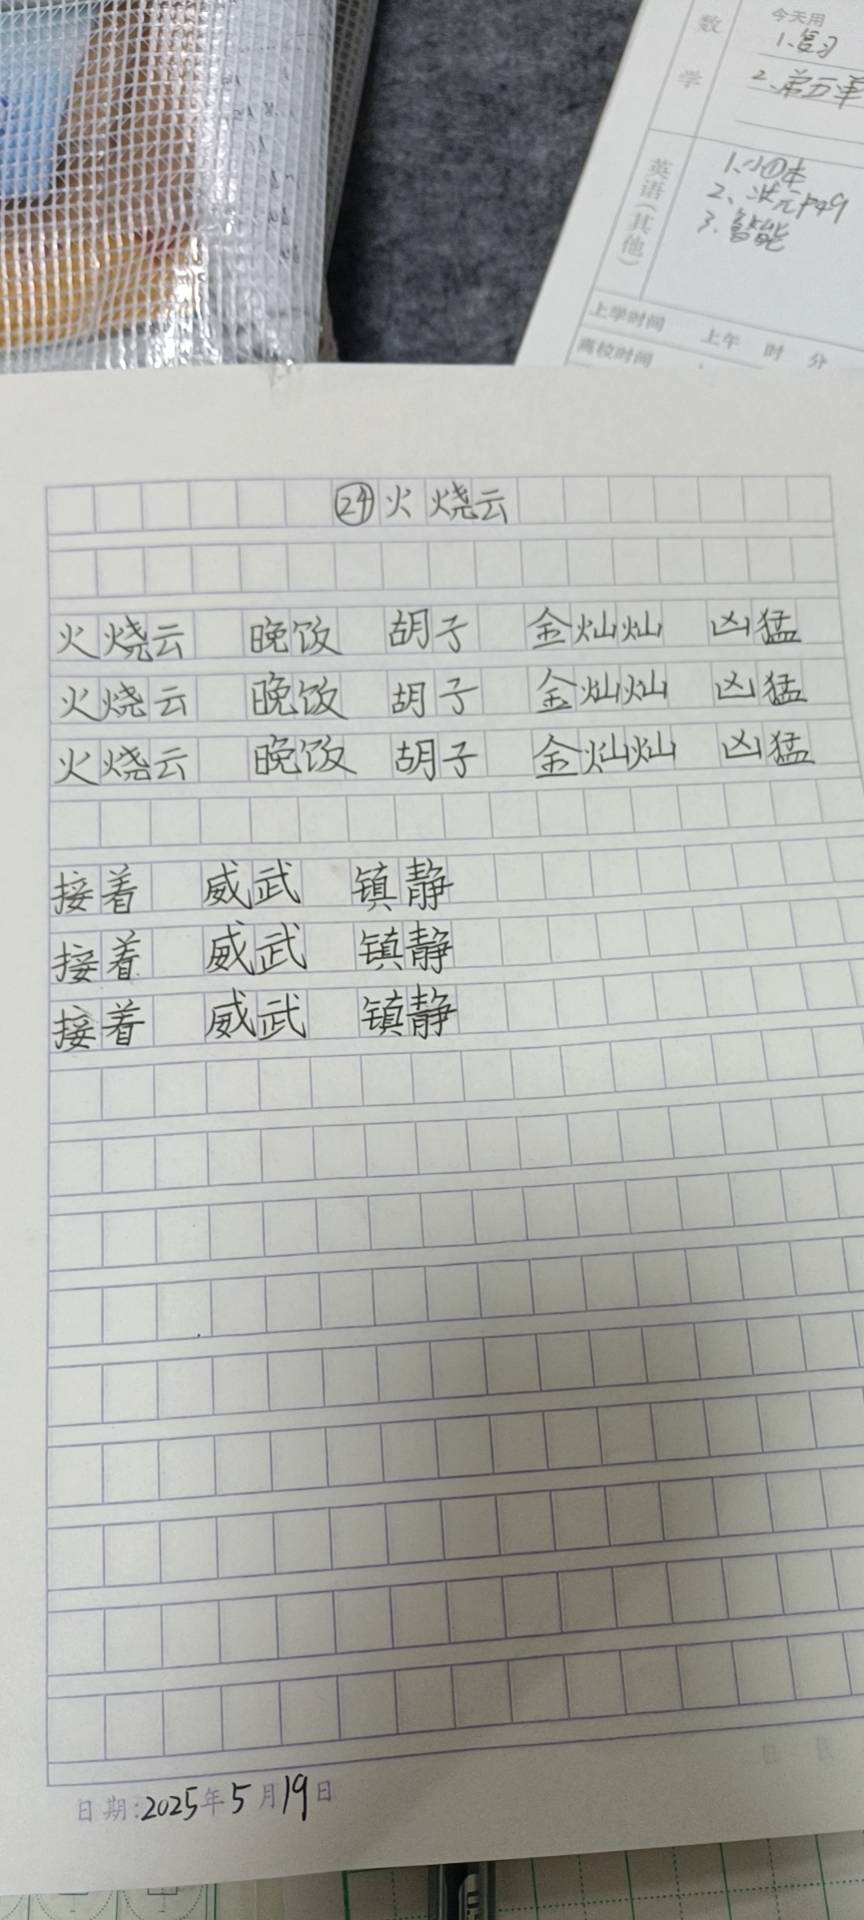 数学
今天用
1、复习
2、第五单
英语(其他)
1、小①本
2、状元P49
3、智能
上学时间 上午 时 分
离校时间
㉔火烧云
火烧云 晚饭 胡子 金灿灿 凶猛
火烧云 晚饭 胡子 金灿灿 凶猛
火烧云 晚饭 胡子 金灿灿 凶猛
接着 威武 镇静
接着 威武 镇静
接着 威武 镇静
日期:2025年5月19日